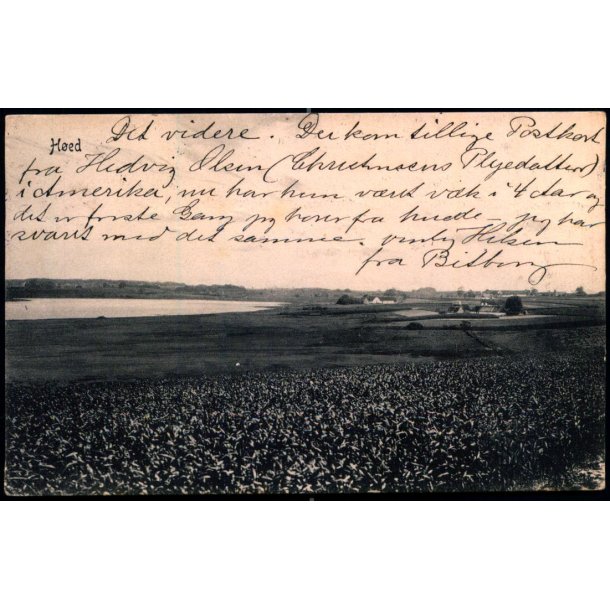 Høed
Det videre. Der kom tillige Postkort
fra Hedvig Olsen (Christensens Plejedatter)
i Amerika, nu har hun været væk i 4 Aar og
det er første Gang jeg hører fra hende – jeg har
svaret med det samme. venlig Hilsen
fra Bitborg